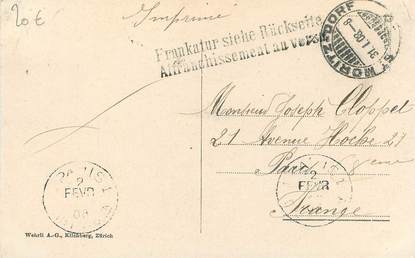 20 €
Imprimé
Frankatur siehe Rückseite
Affranchissement au verso
ST MORITZ-DORF
31 I 08 - 8
Monsieur Joseph Cloppel
21 Avenue Hoche 21
Paris
France
PARIS
2
FEVR
08
2
FEVR
Wehrli A.-G., Kilchberg, Zürich